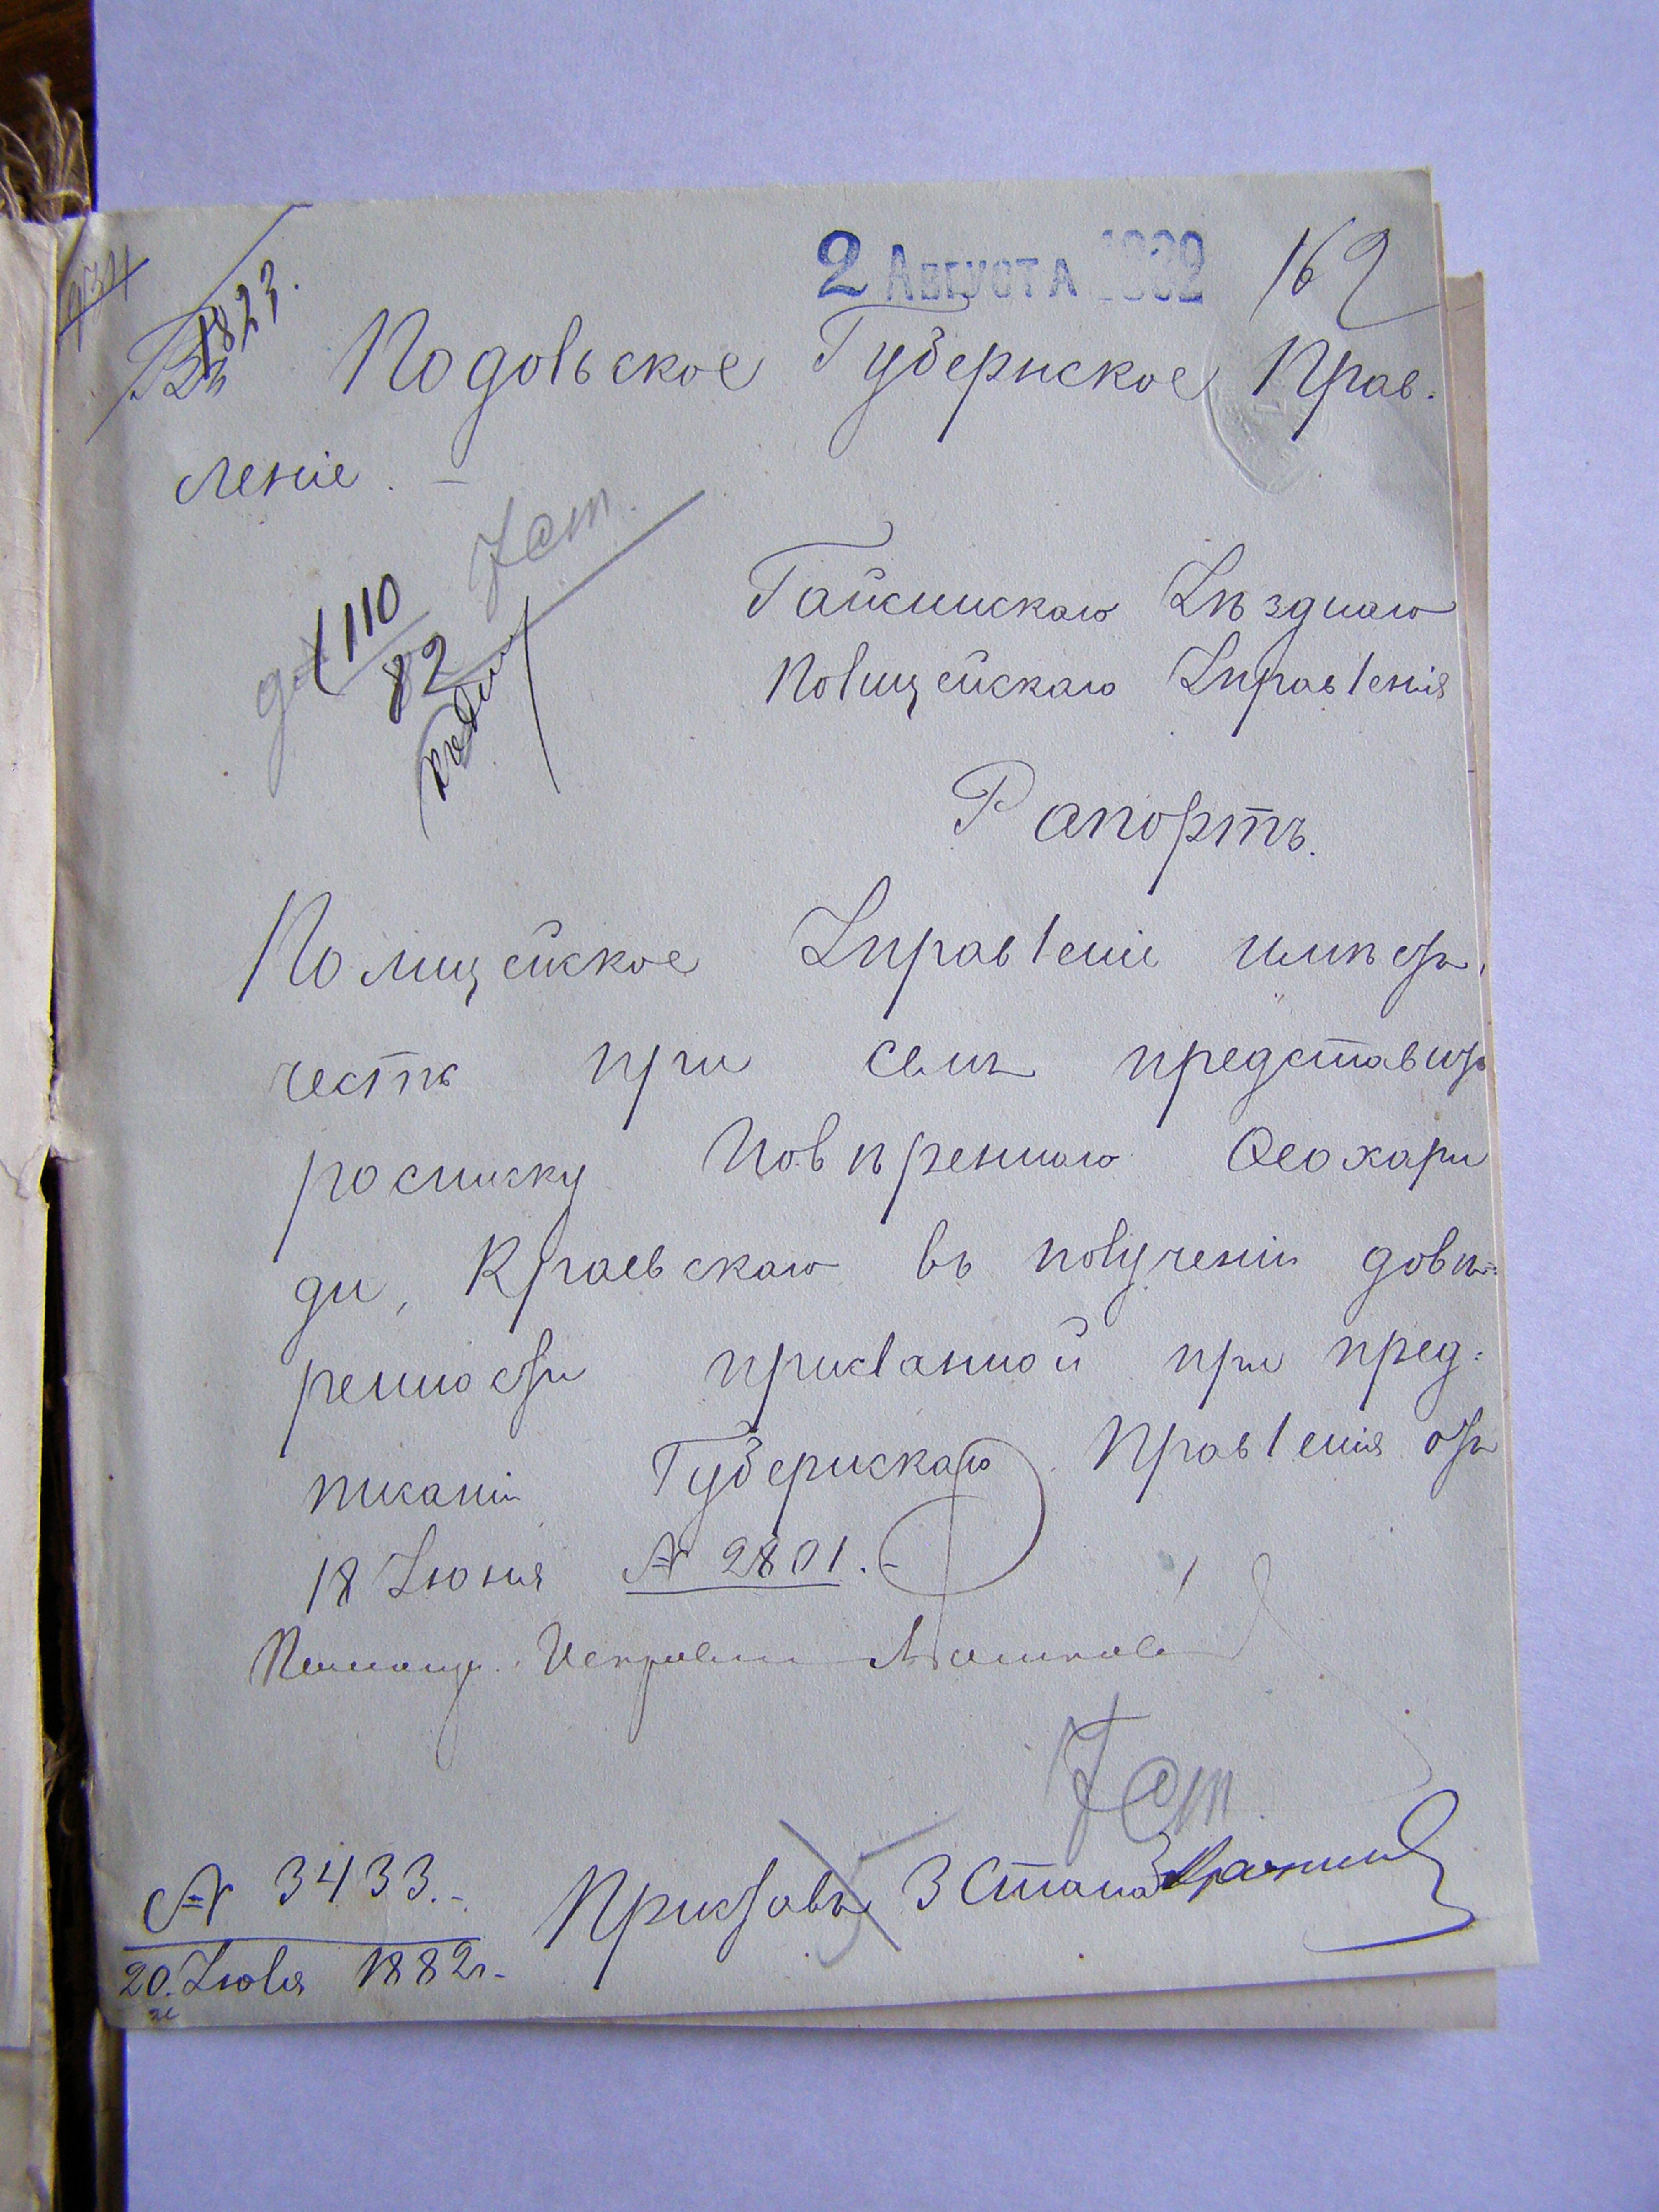 2 АВГУСТА 1882
162
1823.
Въ Подольское Губернское Прав-
леніе. —
110
82
Гайсинскаго Уѣзднаго
Полицейскаго Управленія
Рапортъ.
Полицейское Управленіе имѣетъ
честь при семъ представить
росписку Повѣреннаго Ѳеохари
ди, Краевскаго въ полученіи довѣ=
ренности присланной при пред=
писаніи Губернскаго Правленія отъ
18 Іюня № 2801.-
Исправ
№ 3433.-
20 Іюля 1882 г.-
Приставъ 3 Стана